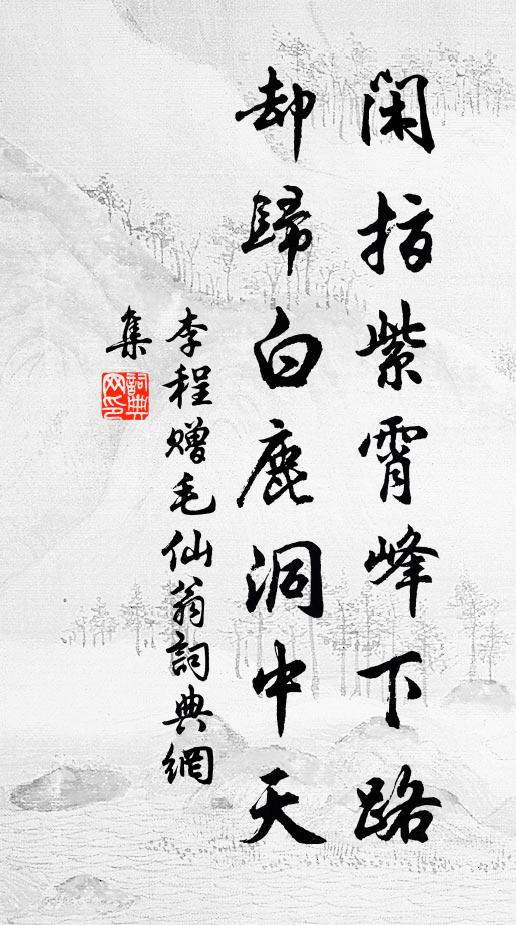 閑指紫霄峰下路
却歸白鹿洞中天
李程贈毛仙翁詞典網
集
詞典
网印